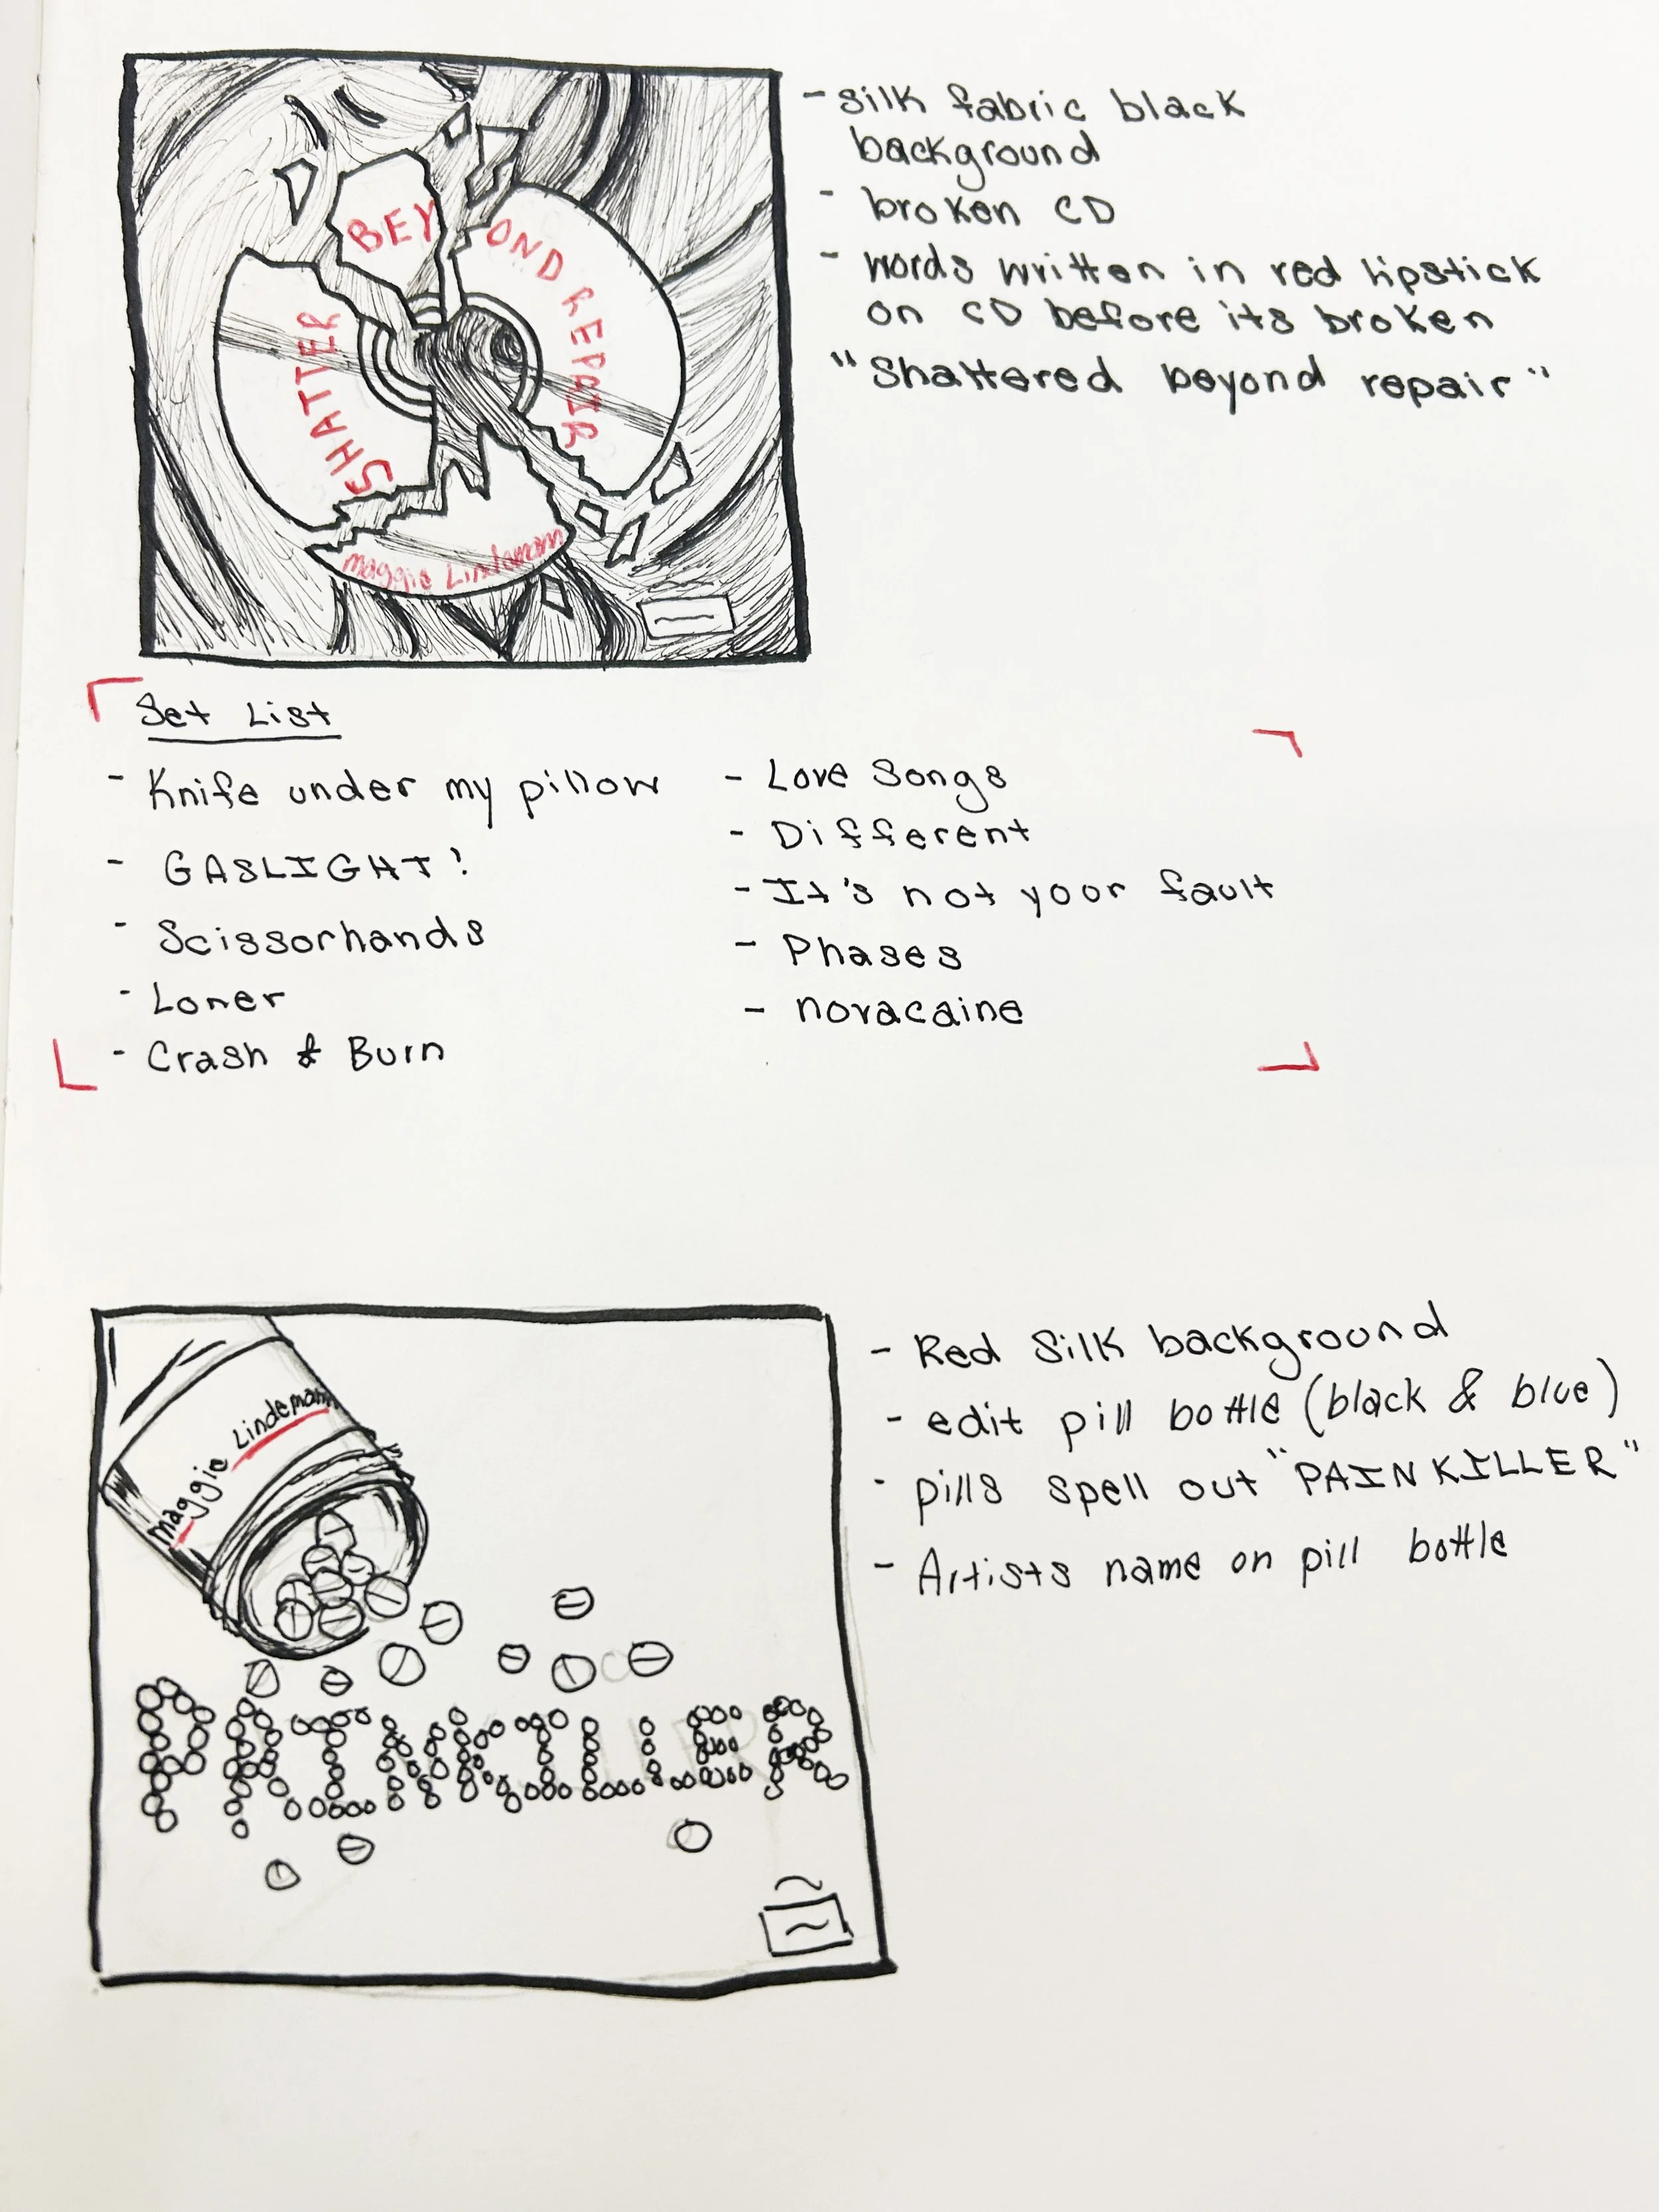 SHATTER
BEY
OND REPAIR
Maggie Lindemann
- Silk fabric black
background
- broken CD
- words written in red lipstick
on CD before its broken
"Shattered beyond repair"
Set List
- Knife under my pillow
- GASLIGHT!
- Scissorhands
- Loner
- Crash & Burn
- Love Songs
- Different
- It's not your fault
- Phases
- novacaine
Maggie Lindemann
PAINKILLER
- Red Silk background
- edit pill bottle (black & blue)
- pills spell out "PAINKILLER"
- Artists name on pill bottle